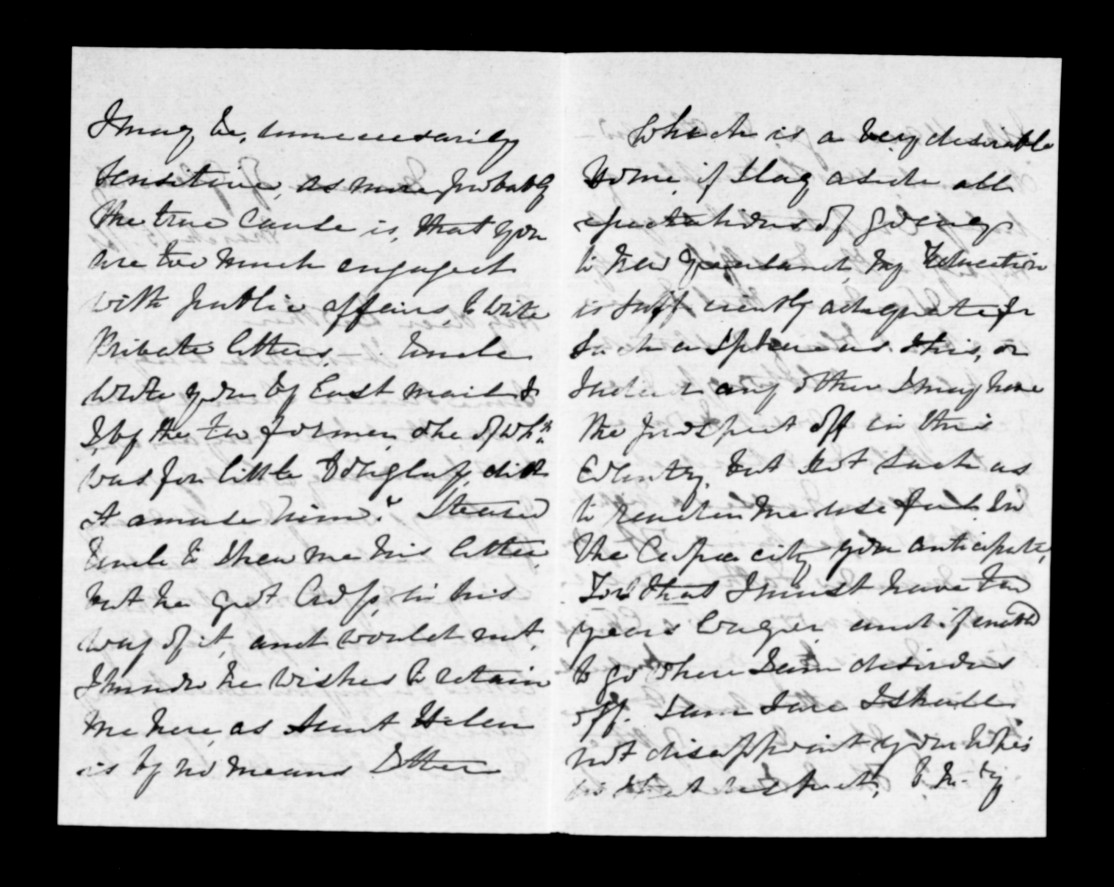 I may be, unnecessarily
sensitive, as more probably
the true cause is, that you
are too much engaged
with public affairs to write
Private letters. Uncle
wrote you by East mail &
I by the two former, one of wh^h
was for little Douglass, did
it amuse him? I teased
Uncle to shew me his letter
but he got Cross, in his
way of it, and would not,
I know he wishes to retain
me here, as Aunt Helen
is by no means Other
Which is a very desirable
Home, if I lay aside all
expectations of going
to New Zealand My Education
is sufficiently adequate for
Such a Sphere as this, or
Indeed any other I may have
the prospect off in this
Country, but not such as
to render me useful In
the Capacity you anticipate,
For that I must have two
years longer and if
to go where I am desirous
off. I am Sure I shall
not disappoint your hopes
in that respect,